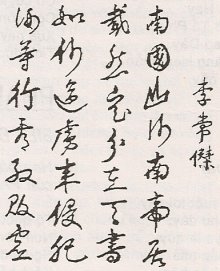 李常傑
南國山河南帝居
截然定分在天書
如何逆虜來侵犯
汝等行看取敗虛